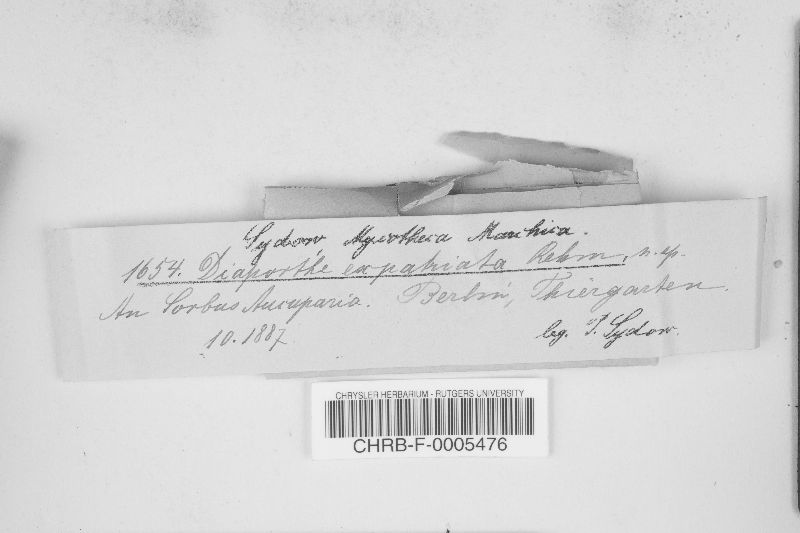 Sydow, Mycotheca Marchica.
1654. Diaporthe expatriata Rehm, n. sp.
An Sorbus Aucuparia. Berlin, Thiergarten.
10.1887. leg. P. Sydow.
CHRYSLER HERBARIUM - RUTGERS UNIVERSITY
CHRB-F-0005476